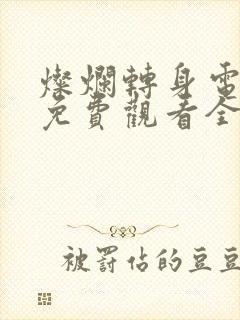 燦爛轉身電
免費觀看全
被罰佔的豆豆